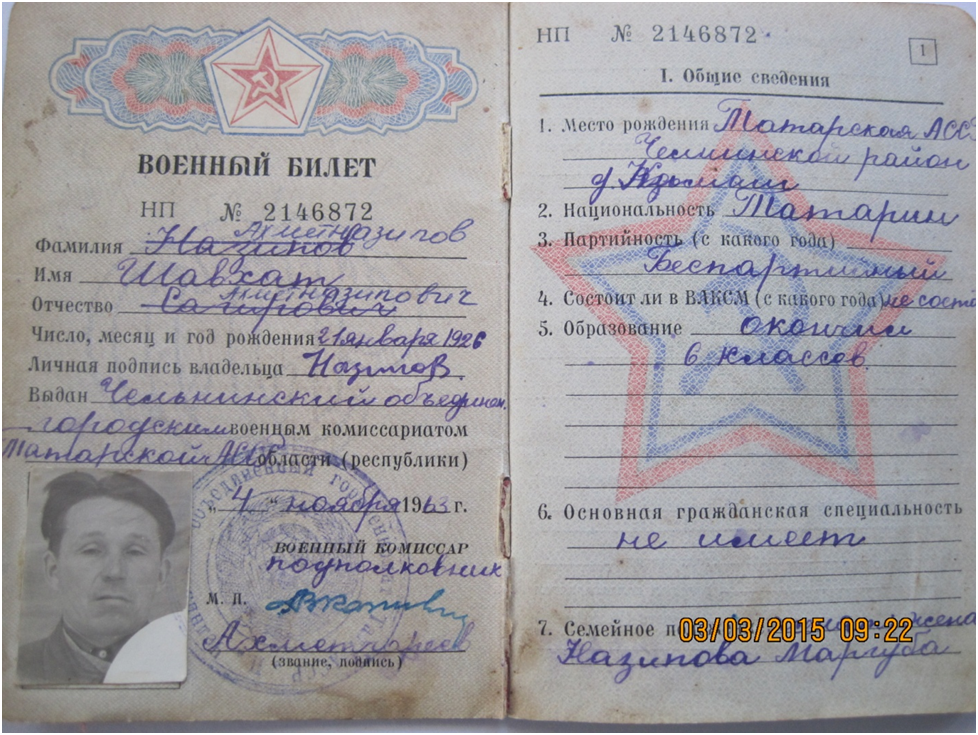 ВОЕННЫЙ БИЛЕТ
НП № 2146872
Ахметназипов
Фамилия Назипов
Имя Шавхат
Ахметназипович
Отчество
Число, месяц и год рождения 21 января 1926
Личная подпись владельца Назипов.
Выдан Челнинский объединен.
городским военным комиссариатом
Татарской АССР области (республики)
„4“ ноября 1963 г.
ВОЕННЫЙ КОМИССАР
подполковник
М. П.
Ахметгареев
(звание, подпись)
НП № 2146872
1
I. Общие сведения
1. Место рождения Татарская АССР
Челнинский район
д.
2. Национальность Татарин
3. Партийность (с какого года)
Беспартийный
4. Состоит ли в ВЛКСМ (с какого года) не сост
5. Образование окончил
6 классов.
6. Основная гражданская специальность
не имеет
7. Семейное жена
Назипова Маргуба
03/03/2015 09:22